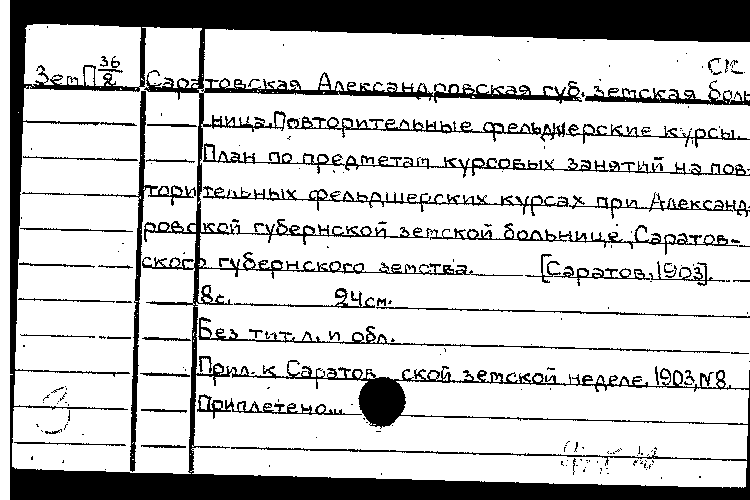 СК
ЗемП 36/2 Саратовская Александровская губ. земская боль
ница. Повторительные фельдшерские курсы.
План по предметам курсовых занятий на пов-
торительных фельдшерских курсах при Александ-
ровской губернской земской больнице, Саратов-
ского губернского земства. [Саратов, 1903].
8с. 24см.
Без тит. л. и обл.
Прил. к Саратов ской земской неделе, 1903, №8.
Приплетено...
3